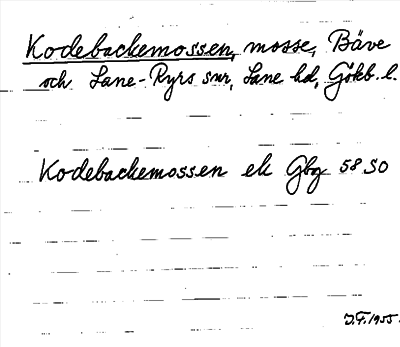 Kodebackemossen, mosse, Bäve
och Lane-Ryrs snr, Lane hd, Gökb. l.
Kodebackemossen ek Gbg 58 SO
J.F. 1955.